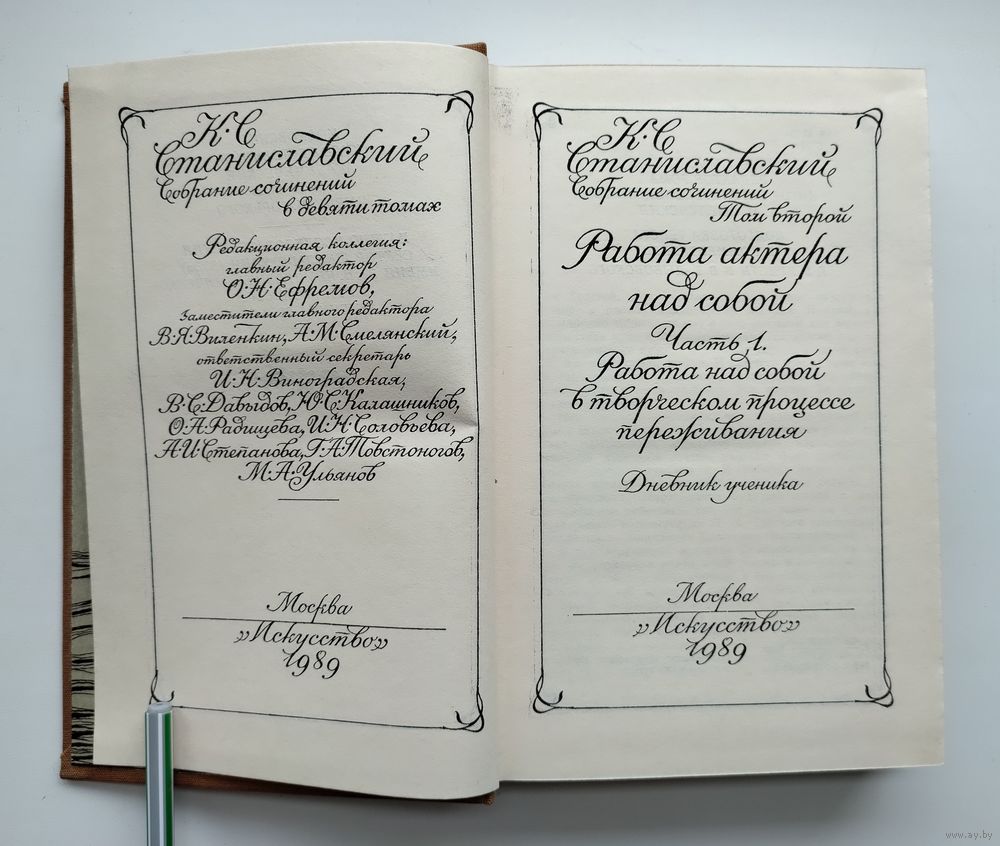 К·С
Станиславский
Собрание сочинений
в девяти томах
Редакционная коллегия:
главный редактор
О·Н·Ефремов,
Заместители главного редактора
В·Я·Виленкин, А·М·Смелянский,
ответственный секретарь
И·Н·Виноградская,
В·С·Давыдов, Ю·С·Калашников,
О·А·Радищева, И·Н·Соловьева,
А·И·Степанова, Г·А·Товстоногов,
М·А·Ульянов
Москва
»Искусство»
1989
К·С
Станиславский
Собрание сочинений
Том второй
Работа актера
над собой
Часть 1.
Работа над собой
в творческом процессе
переживания
Дневник ученика
Москва
»Искусство»
1989
www.ay.by